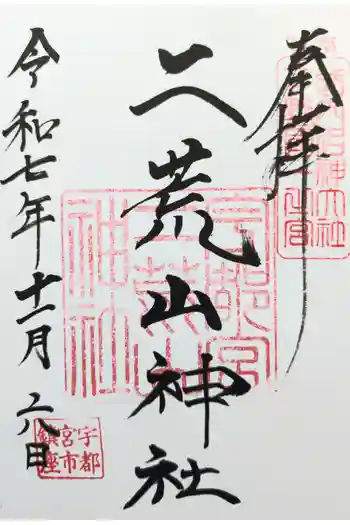 奉拝
名神大社
二荒山神社
宇都宮
二荒山
神社
令和七年十一月六日
宇都
宮市
鎮座